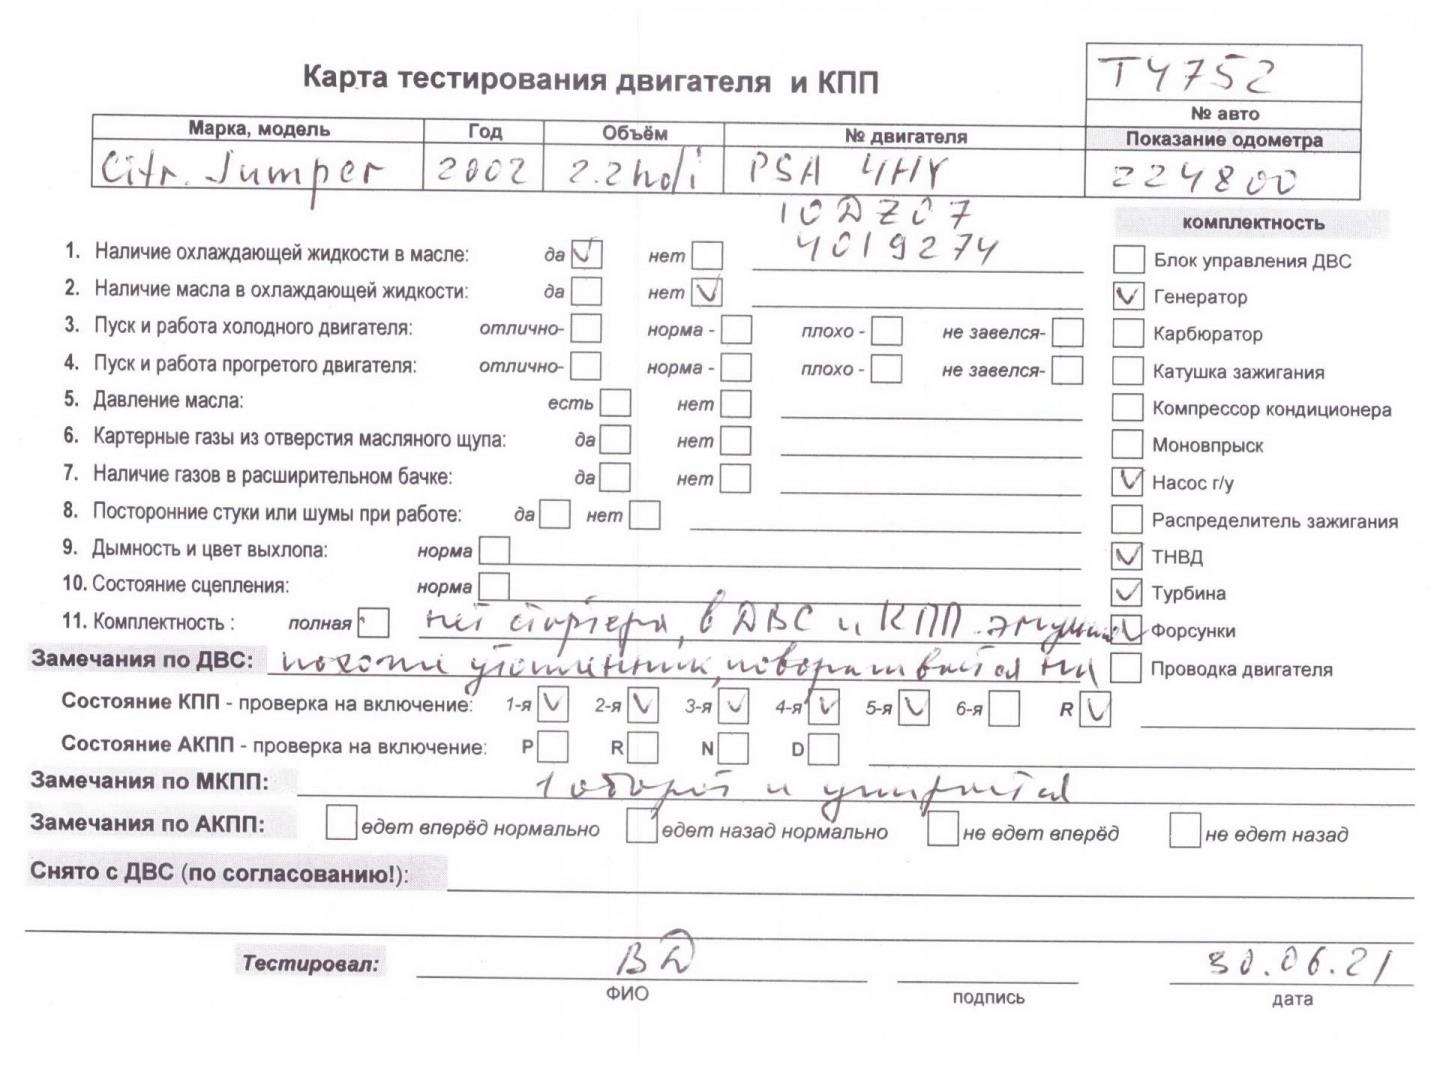 Карта тестирования двигателя и КПП
T4752
№ авто
Марка, модель Год Объём № двигателя Показание одометра
Citr. Jumper 2002 2.2 hdi PSA 4HY 224800
10DZ07
4019274
комплектность
1. Наличие охлаждающей жидкости в масле: да нет
Блок управления ДВС
2. Наличие масла в охлаждающей жидкости: да нет
Генератор
3. Пуск и работа холодного двигателя: отлично- норма - плохо - не завелся-
Карбюратор
4. Пуск и работа прогретого двигателя: отлично- норма - плохо - не завелся-
Катушка зажигания
5. Давление масла: есть нет
Компрессор кондиционера
6. Картерные газы из отверстия масляного щупа: да нет
Моновпрыск
7. Наличие газов в расширительном бачке: да нет
Насос г/у
8. Посторонние стуки или шумы при работе: да нет
Распределитель зажигания
9. Дымность и цвет выхлопа: норма
ТНВД
10. Состояние сцепления: норма
Турбина
11. Комплектность : полная нет стартера, в ДВС и КПП эмульсия
Форсунки
Замечания по ДВС: похоже утопленник, поворачивается на
Проводка двигателя
Состояние КПП - проверка на включение: 1-я 2-я 3-я 4-я 5-я 6-я R
Состояние АКПП - проверка на включение: P R N D
Замечания по МКПП: 1 оборот и упирается
Замечания по АКПП: едет вперёд нормально едет назад нормально не едет вперёд не едет назад
Снято с ДВС (по согласованию!):
Тестировал: ВД 30.06.21
ФИО подпись дата